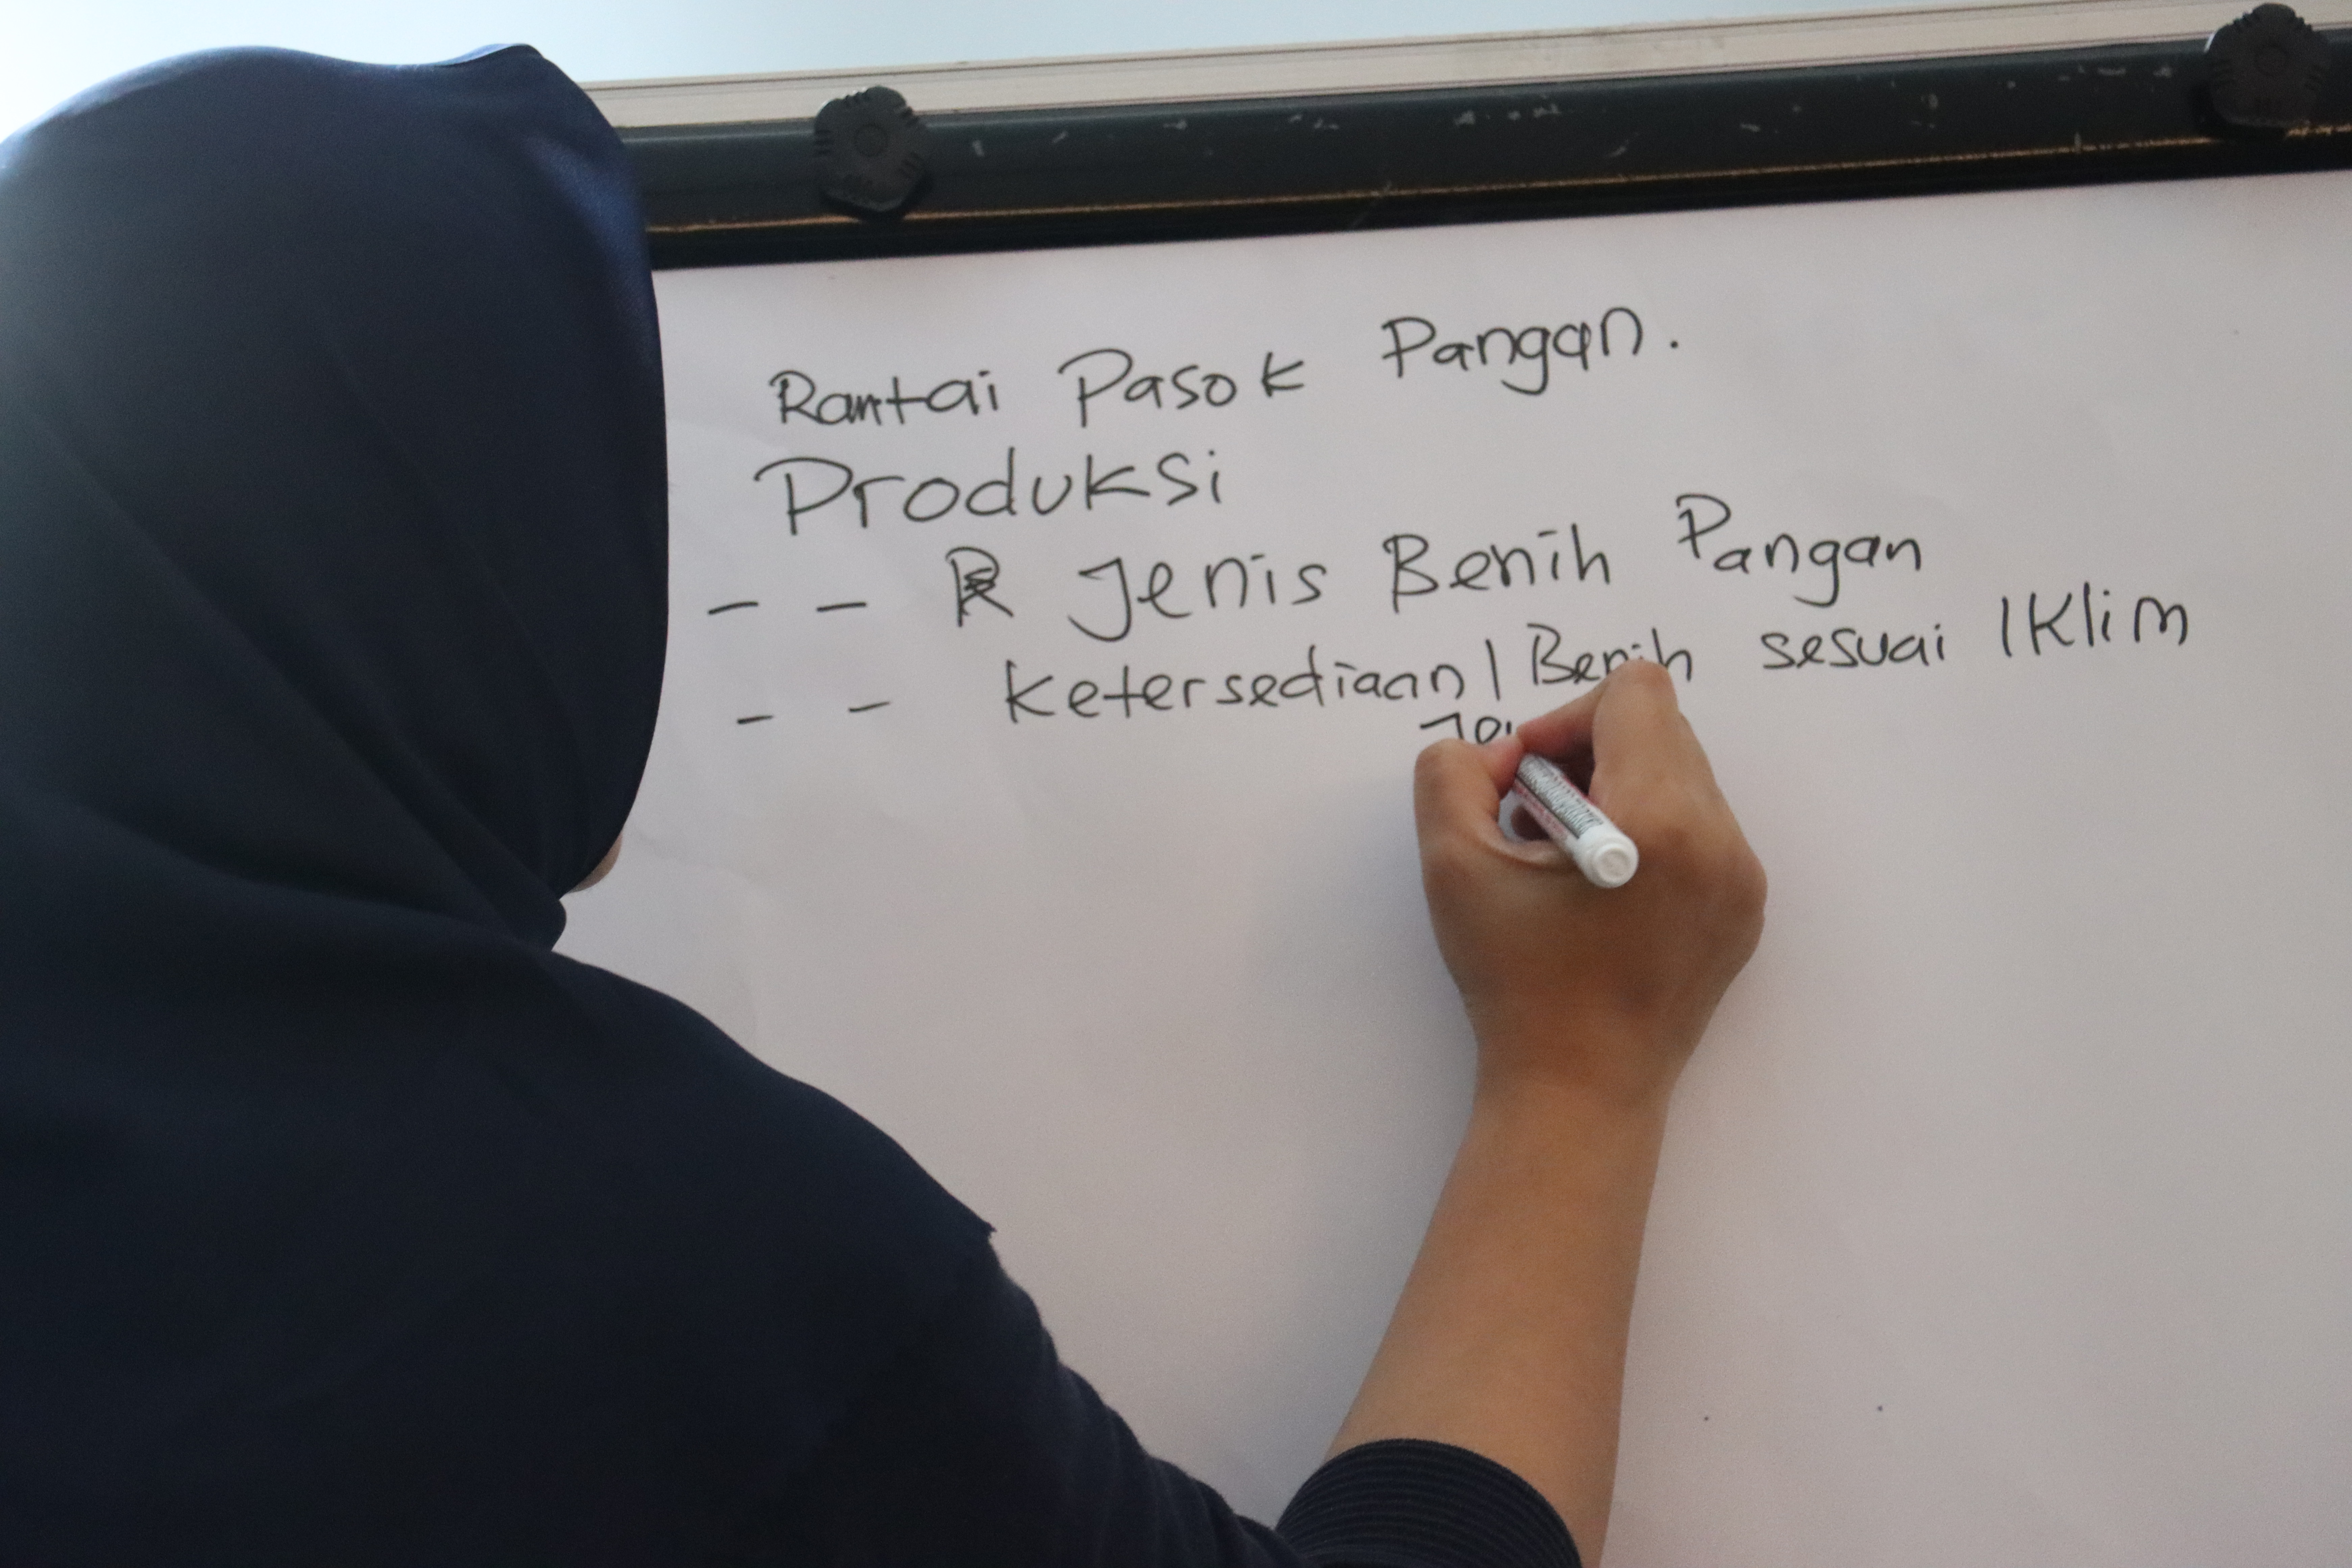 Rantai Pasok Pangan.
Produksi
- - R Jenis Benih Pangan
- - Ketersediaan | Benih sesuai Iklim